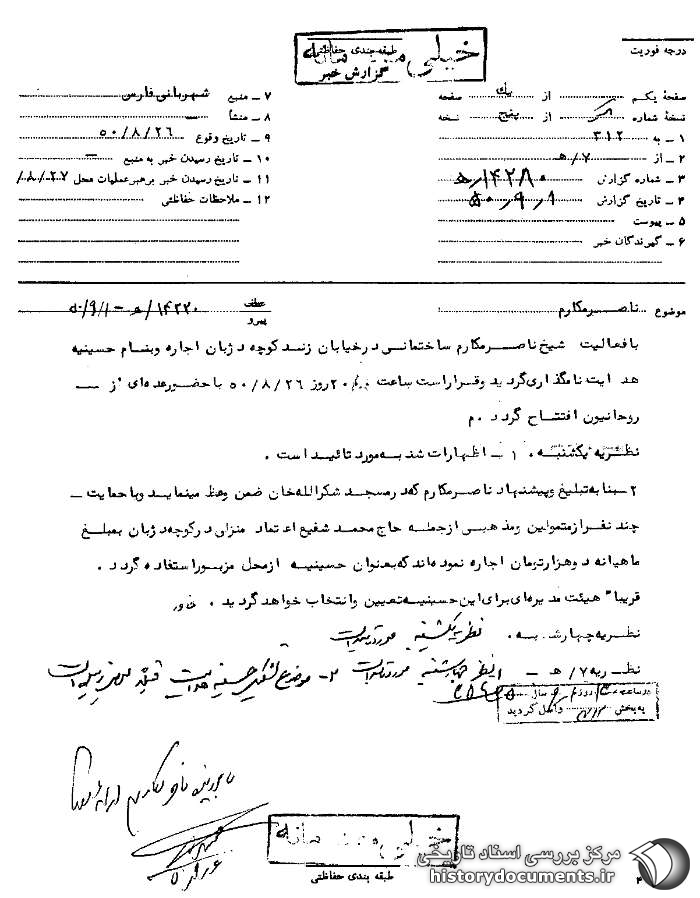 خیلی محرمانه
طبقه بندی حفاظتی
گزارش خبر
درجه فوریت
صفحهٔ یکم از یک صفحه
نسخهٔ شماره از پنج نسخه
۱ ـ به ۳۱۲
۲ ـ از ۷/هـ
۳ ـ شماره گزارش ۱۴۲۸۰/هـ
۴ ـ تاریخ گزارش ۵۰٫۹٫۱
۵ ـ پیوست
۶ ـ گیرندگان خبر
۷ ـ منبع شهربانی فارس
۸ ـ منشأ ـ
۹ ـ تاریخ وقوع ۵۰/۸/۲۶
۱۰ ـ تاریخ رسیدن خبر به منبع ـ
۱۱ ـ تاریخ رسیدن خبر برهبر عملیات محل ۸/۲۷/
۱۲ ـ ملاحظات حفاظتی
موضوع ناصر مکارم
عطف
پیرو ۱۴۲۲۰/هـ ـ ۵۰/۹/۱
با فعالیت شیخ ناصر مکارم ساختمانی در خیابان زند کوچه دژبان اجاره و بنام حسینیه
هدایت نامگذاری گردید و قرار است ساعت ۲۰ روز ۵۰/۸/۲۶ با حضور عده‌ای از ــ
روحانیون افتتاح گردد . م
نظریه یکشنبه . ۱ ـ اظهارات شنبه مورد تائید است .
۲ ـ بنا به تبلیغ و پیشنهاد ناصر مکارم که در مسجد شکرالله خان ضمن وعظ مینماید و با حمایت ـ
چند نفر از متمولین و مذهبی از جمله حاج محمد شفیع اعتماد منزلی در کوچه دژبان بمبلغ
ماهیانه دو هزار تومان اجاره نموده‌اند که بعنوان حسینیه از محل مزبور استفاده گردد .
قریباً هیئت مدیره‌ای برای این حسینیه تعیین و انتخاب خواهد گردید . خاور
نظریه چهارشنبه . نظریه یکشنبه مورد تائید است
نظریه ۷/هـ ـ ۱ـ نظر چهارشنبه مورد تائید است ۲ـ موضوع تشکیل حسینیه هدایت قبلاً بعرض رسیده است
در ساعت روز سال
به بخش ۳۱۲ واصل گردید
خیلی محرمانه
طبقه بندی حفاظتی
مرکز بررسی اسناد تاریخی
historydocuments.ir